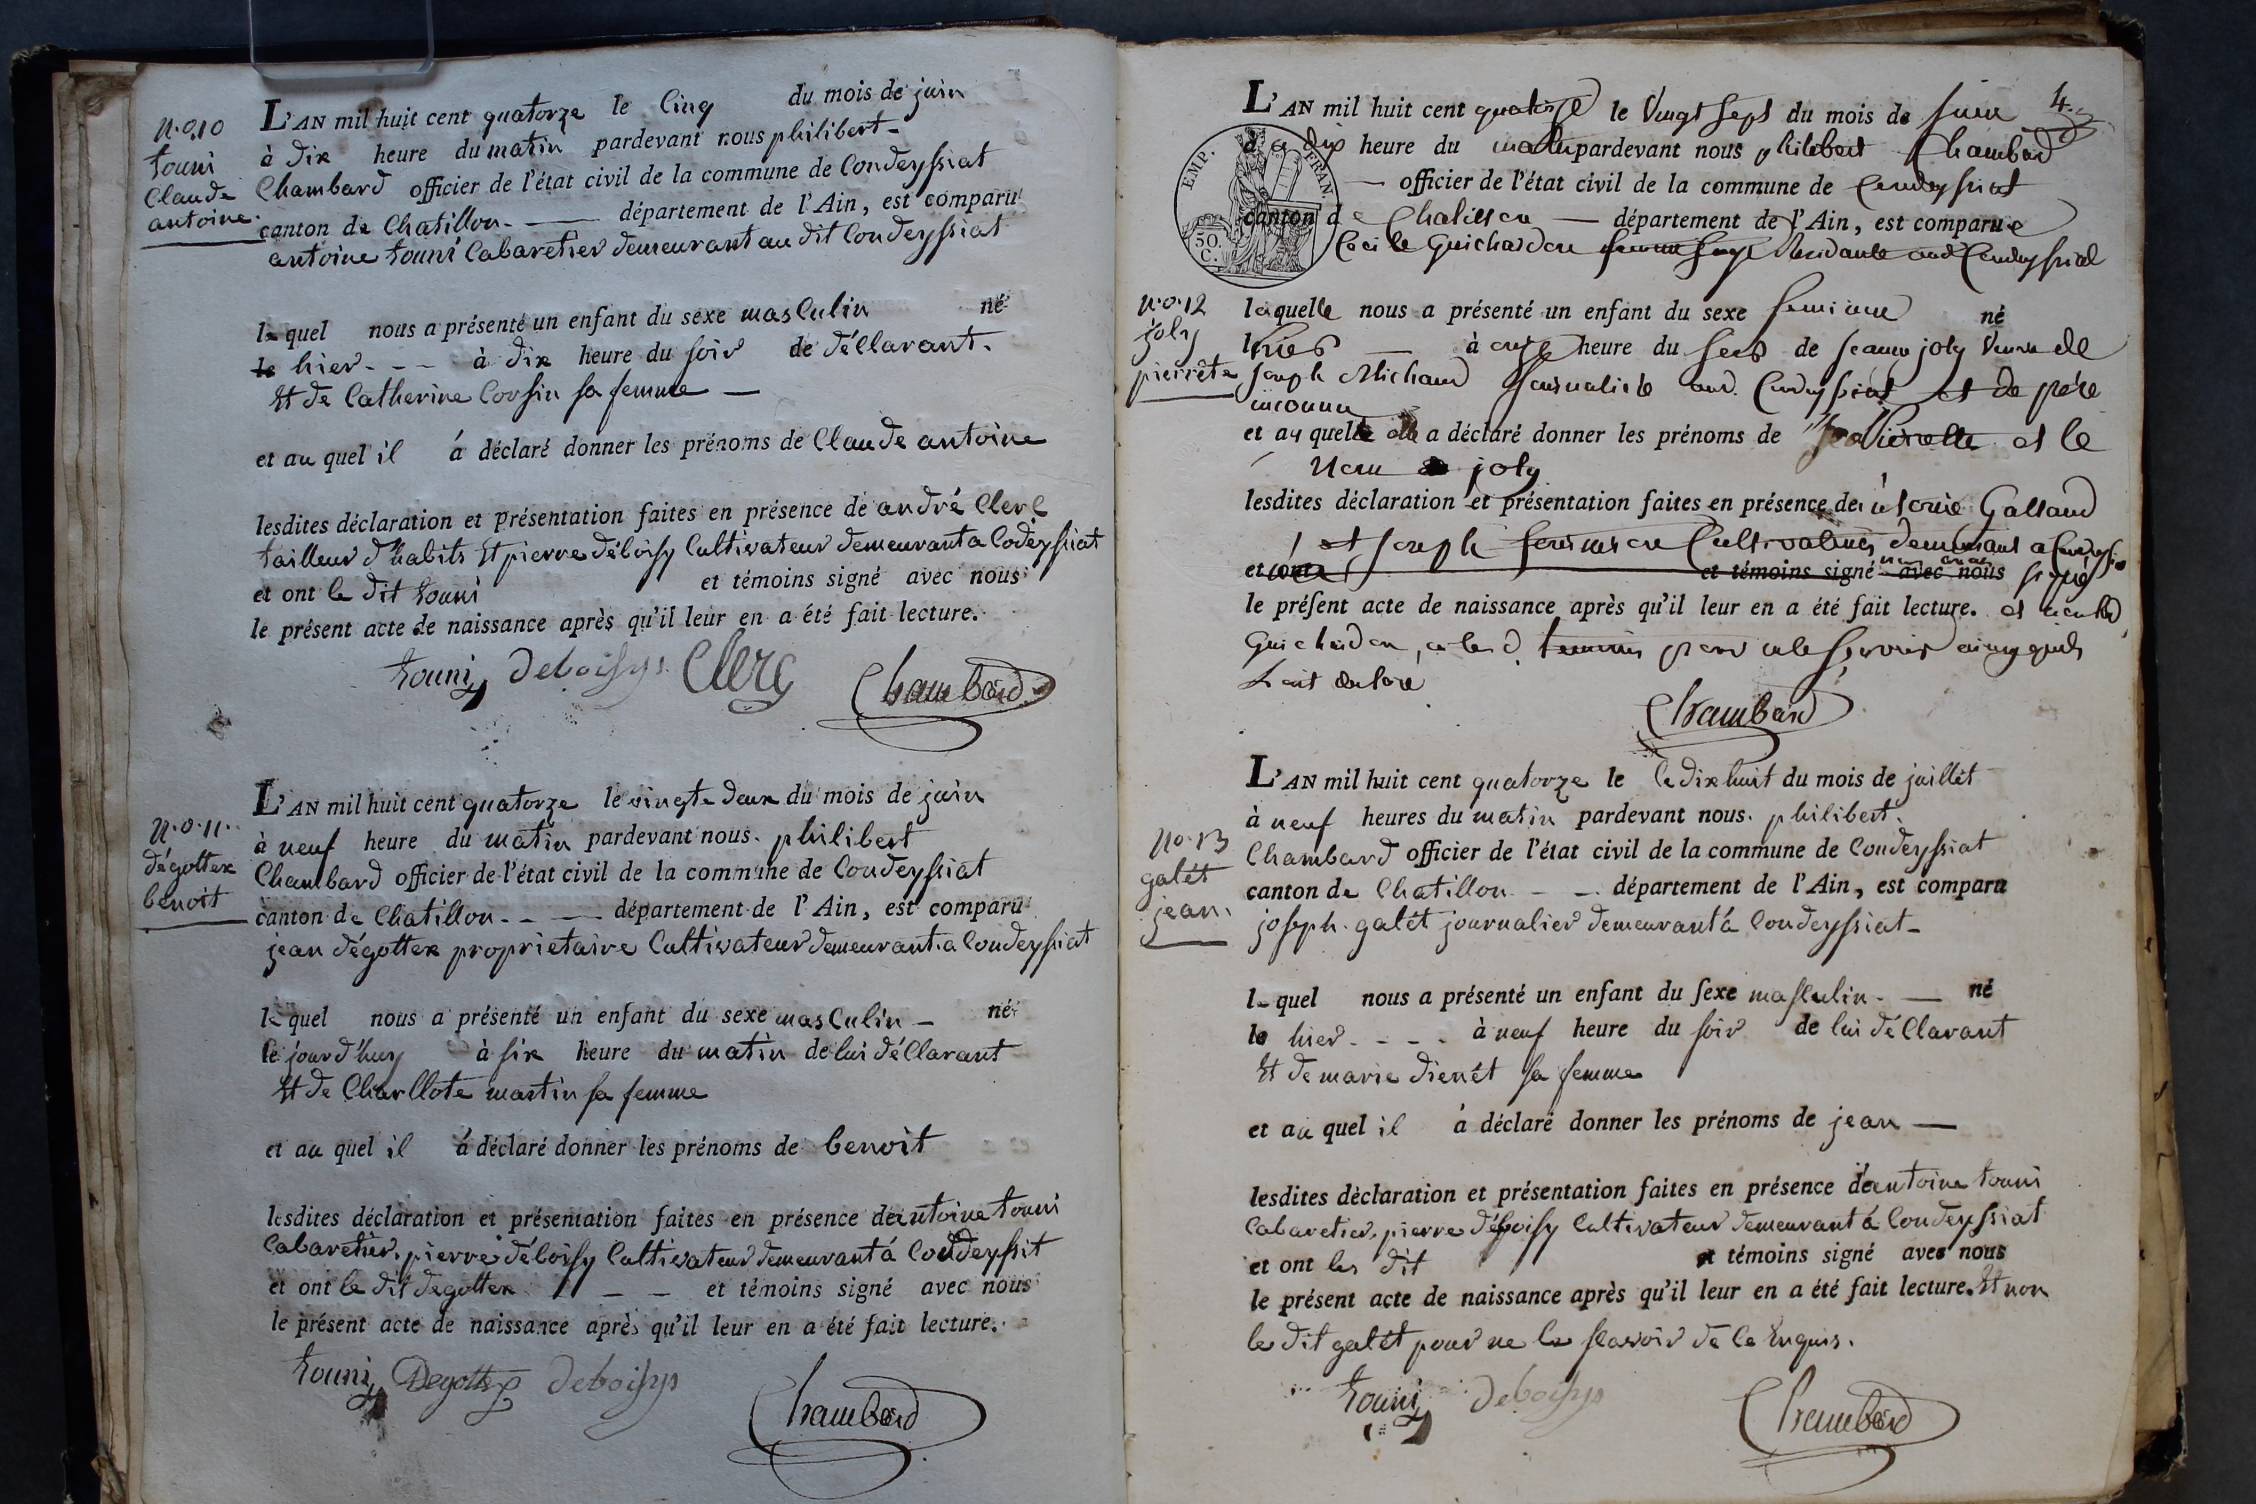 N.o.10
touni
Claude
antoine.
L'AN mil huit cent quatorze le Cinq du mois de juin
à dix heure du matin pardevant nous philibert
Chambard officier de l'état civil de la commune de Condeyssiat
canton de Chatillon. — département de l'Ain, est comparu
antoine touni Cabaretier demeurant au dit Condeyssiat
lequel nous a présenté un enfant du sexe masculin né
le hier - - - à dix heure du soir de déClarant.
Et de Catherine Corsin sa femme —
et au quel il à déclaré donner les prénoms de Claude antoine
lesdites déclaration et présentation faites en présence de andré Clerc
tailleur d'habits Et pierre déboisy Cultivateur demeurant a Codeyssiat
et ont le dit touni et témoins signé avec nous
le présent acte de naissance après qu'il leur en a été fait lecture.
touni deboisys Clerc Chambard
N.o.11.
dégottex
benoit
L'AN mil huit cent quatorze le vingte deux du mois de juin
à neuf heure du matin pardevant nous. philibert
Chambard officier de l'état civil de la commune de Condeyssiat
canton de Chatillon. - - — département de l'Ain, est comparu
jean dégottex proprietaire Cultivateur demeurant a Condeyssiat
lequel nous a présenté un enfant du sexe masculin — né
le jourd'huy à six heure du matin de lui déClarant
Et de Charllote martin sa femme
et au quel il à déclaré donner les prénoms de benoit
lesdites déclaration et présentation faites en présence de antoine touni
Cabaretier, pierre déboisy Cultivateur demeurant á Condeyssit
et ont le dit degottex — — et témoins signé avec nous
le présent acte de naissance après qu'il leur en a été fait lecture.
touni Degottex deboisys
Chambard
4
L'AN mil huit cent quatorze le vingt sept du mois de juin
à dix heure du matin pardevant nous philibert Chambard
— officier de l'état civil de la commune de Condeyssiat
canton de Chatillon — département de l'Ain, est comparue
Cecile Guichardon femme sage Residante aud Condeyssiat
EMP. FRAN.
50. C.
N.o.12
joly
pierrete
laquelle nous a présenté un enfant du sexe feminin né
hier — à onze heure du soir de jeanne joly veuve de
joseph Michaud journaliere aud. Condeyssiat et de père
inconnu
et au quelle elle a déclaré donner les prénoms de Pierrette et le
Nom de joly
lesdites déclaration et présentation faites en présence de antoine Galland
et joseph Cultivateurs demeurant a Condeyssia
et ont et témoins signé avec nous signé
le présent acte de naissance après qu'il leur en a été fait lecture. et
Guichardon, et led. temoin pour ne le savoir ainsy quils
L'ont declaré
Chambard
No.13
galét
jean.
L'AN mil huit cent quatorze le le dix huit du mois de juillet
à neuf heures du matin pardevant nous. philibert.
Chambard officier de l'état civil de la commune de Condeyssiat
canton de Chatillon - — département de l'Ain, est comparu
joseph. galét journalier demeurant á Condeyssiat —
lequel nous a présenté un enfant du sexe masculin. — né
le hier - - - - à neuf heure du soir de lui déClarant
Et de marie dienét sa femme
et au quel il à déclaré donner les prénoms de jean —
lesdites déclaration et présentation faites en présence de antoine touni
Cabaretier, pierre déboisy Cultivateur demeurant á Condeyssiat
et ont les dit et témoins signé avec nous
le présent acte de naissance après qu'il leur en a été fait lecture. Et non
le dit galét pour ne le scavoir de ce Enquis.
touni deboisys
Chambard